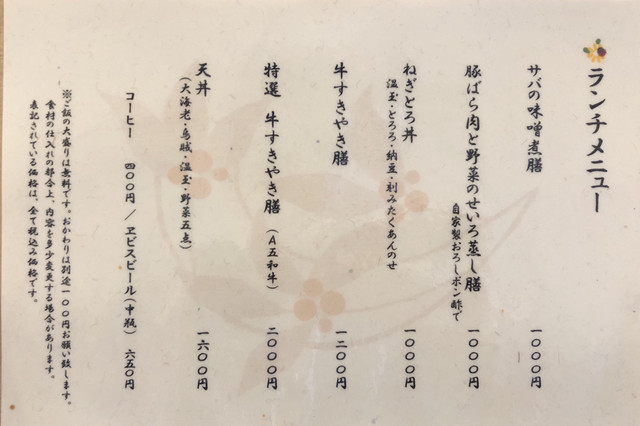 ランチメニュー
サバの味噌煮膳 一〇〇〇円
豚ばら肉と野菜のせいろ蒸し膳 一〇〇〇円
自家製おろしポン酢で
ねぎとろ丼 一〇〇〇円
温玉・とろろ・納豆・刻みたくあんのせ
牛すきやき膳 一二〇〇円
特選 牛すきやき膳（A五和牛） 二〇〇〇円
天丼 一六〇〇円
（大海老・烏賊・温玉・野菜五点）
コーヒー 四〇〇円 / ヱビスビール（中瓶） 六五〇円
※ご飯の大盛りは無料です。おかわりは別途一〇〇円お願い致します。
食材の仕入れの都合上、内容を多少変更する場合があります。
表記されている価格は、全て税込み価格です。